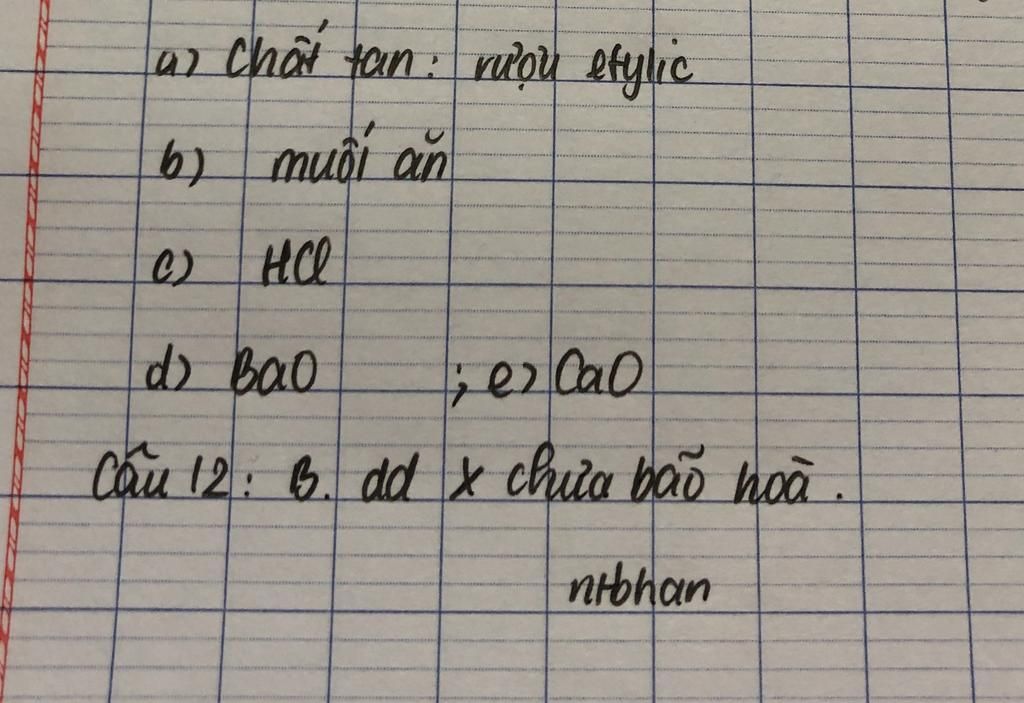 a) Chất tan: rượu etylic
b) muối ăn
c) HCl
d) BaO ; e) CaO
Câu 12: B. dd X chưa bão hoà.
ntbhan